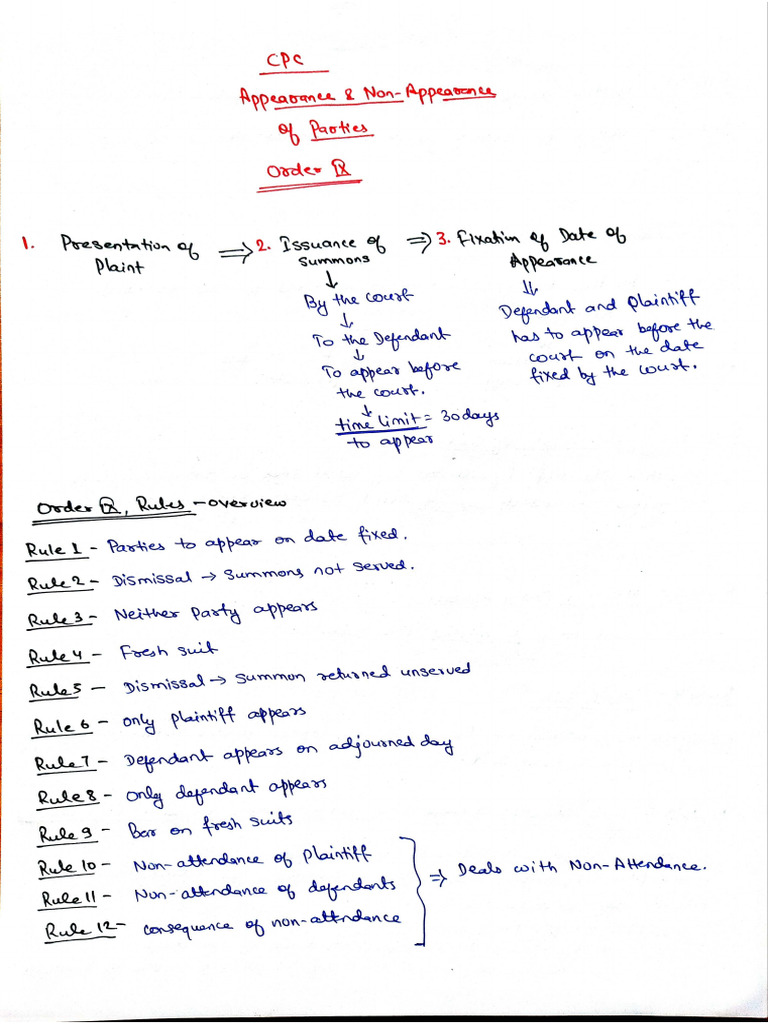 CPC
Appearance & Non-Appearance
of Parties
Order IX
1. Presentation of Plaint ⇒ 2. Issuance of Summons ⇒ 3. Fixation of Date of Appearance
↓
By the court
↓
To the Defendant
↓
To appear before
the court.
↓
time limit = 30 days
to appear
⇓
Defendant and plaintiff
has to appear before the
court on the date
fixed by the court.
Order IX, Rules - overview
Rule 1 - Parties to appear on date fixed.
Rule 2 - Dismissal → summons not served.
Rule 3 - Neither party appears
Rule 4 - Fresh suit
Rule 5 - Dismissal → summon returned unserved
Rule 6 - only plaintiff appears
Rule 7 - Defendant appears on adjourned day
Rule 8 - only defendant appears
Rule 9 - Bar on fresh suits
Rule 10 - Non-attendance of plaintiff
Rule 11 - Non-attendance of defendants
Rule 12 - consequence of non-attndance
⇒ Deals with Non-Attendance.